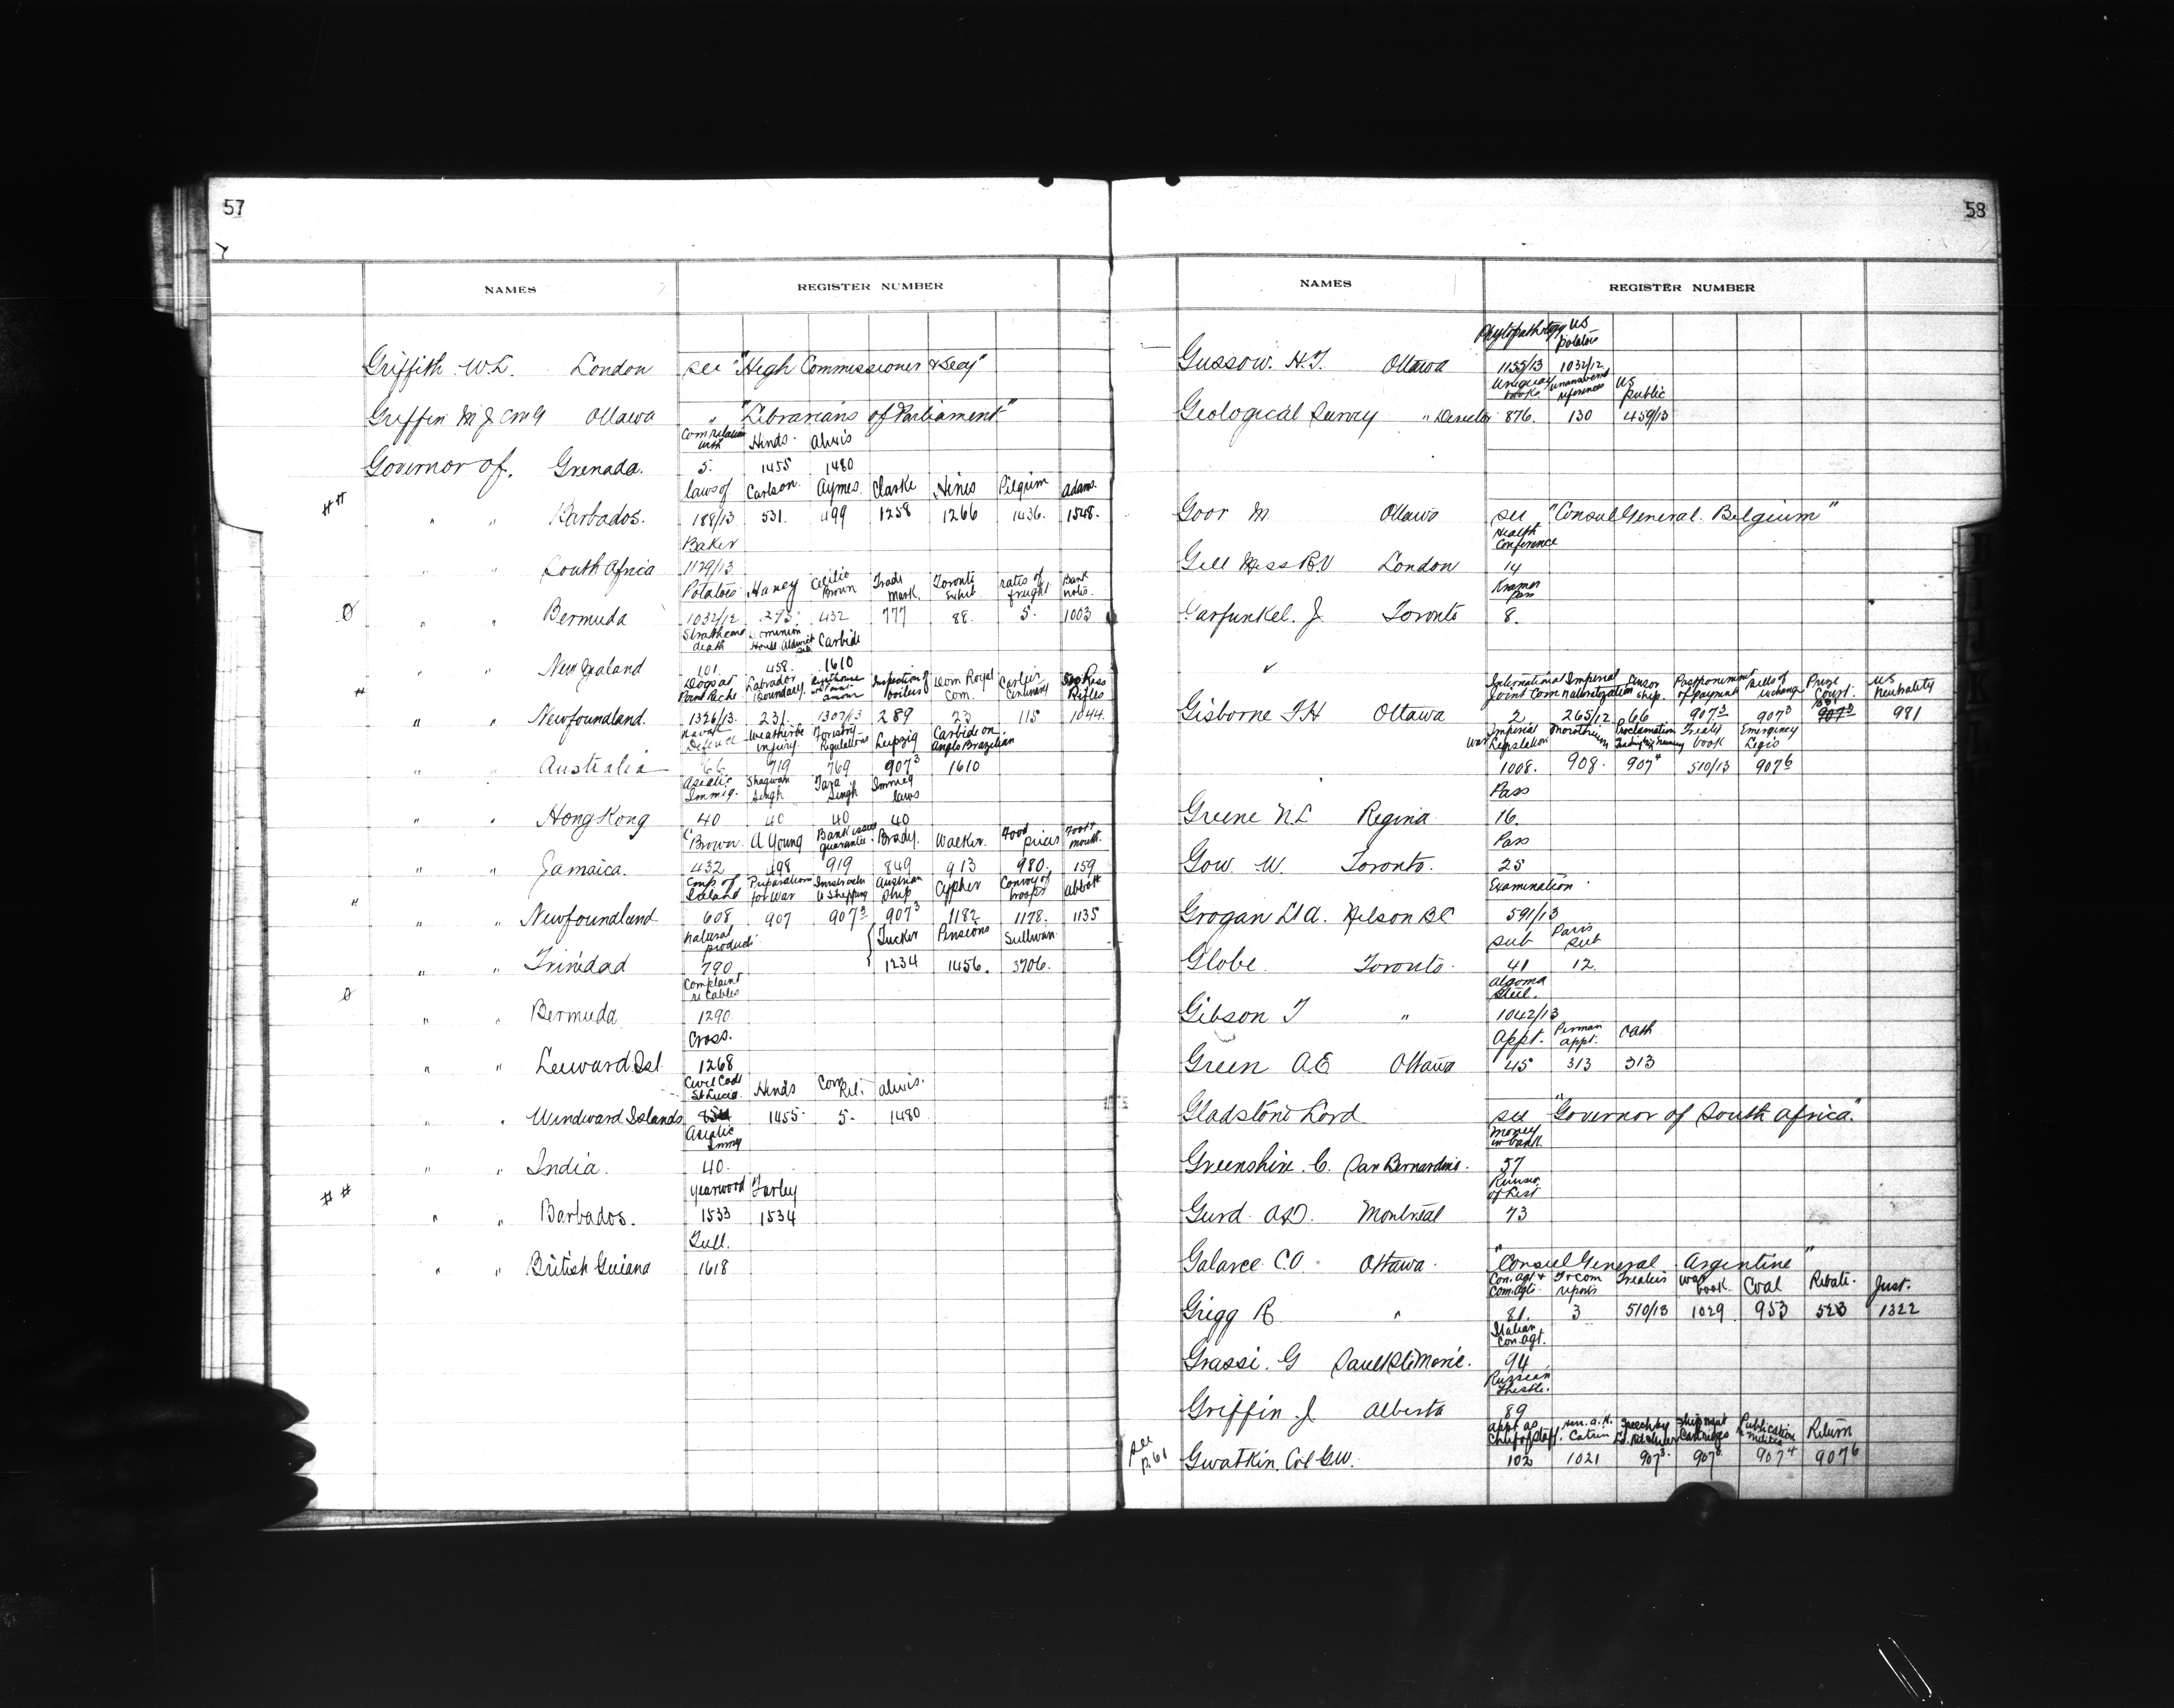 57
NAMES REGISTER NUMBER
Griffith W.L. London see "High Commissioner & Secy"
Griffin M J CMG Ottawa " "Librarians of Parliament"
Com relations with Hinds. Alwis
Governor of. Grenada. 5. 1455 1480
laws of Carlson. Aymes. Clarke Hines Pilgrim Adams.
## " " Barbados. 188/13 531. 499 1258 1266 1436. 1548.
Baker
" " South Africa 1129/13
Potatoes Haney Cecilio Brown Trade Mark. Toronto Exhib. rates of freight Bank notes.
Ø " " Bermuda 1032/12 293. 432 777 88. 5. 1003
Strathcona death Dominion House Aldwich site Carbide
" " New Zealand 101 458. 1610
Dogs at Labrador Boundary. Inspection of boilers Dom Royal Com. Cartier Centenary Ross Rifles
# " " Newfoundland. 1326/13. 231. 1307/13 289 23 115 1044.
Naval Defence Weatherbe injury. Forestry Regulations Leipzig Carbide on Anglo Brazilian
" " Australia 66 719 769 907³ 1610
Asiatic Immig. Bhagwan Singh Tara Singh Immig laws
" " Hong Kong 40 40 40 40
C Brown. A Young Bank issues guarantee. Brady. Walker. Food prices Foot & mouth.
" " Jamaica. 432 498 919 849 913 980. 159
Emp. of Ireland Preparations for War Instructn to Shipping Austrian Ship Cypher Convoy of troops Abbott
" " " Newfoundland 608 907 907³ 907³ 1182 1178. 1135
Natural products { Tucker Pensions Sullivan.
" " Trinidad 790 1234 1456. 3706.
Complaint re Cables
Ø " " Bermuda 1290.
Cross.
" " Leeward Isl. 1268
Civil Code St Lucia. Hinds Com Rel. Alwis.
" " Windward Islands 854 1455. 5. 1480
Asiatic Immig
" " India. 40.
Yearwood Farley
## " " Barbados. 1533 1534
Tull.
" " British Guiana 1618
58
NAMES REGISTER NUMBER
Phytopathology US potatoes
Gussow. H.T. Ottawa 1155/13 1032/12
unanswered references US public
Geological Survey " Director 876. 130 459/13
Goor M. Ottawa see "Consul General. Belgium"
Health Conference
Gell Miss B.V London 14
Kramer Pass
Garfunkel. J. Toronto 8.
International Joint Com Imperial Naturalization Censor ship. Postponement of payment Bills of exchange Prize Court. US Neutrality
Gisborne F H Ottawa 2 265/12 66 907³ 907³ 907³ 981
Imperial War Legislation Moratorium Proclamation Trading with Enemy Treaty book Emergency Legis
1008. 908. 907⁴ 510/13 907⁶
Pass
Greene N.L Regina 16.
Pass
Gow W. Toronto. 25
Examination
Grogan Lt A. Nelson BC 591/13
sub Paris sub
Globe. Toronto. 41 12.
Algoma Steel.
Gibson T " 1042/13
Appt. Perman appt. Oath
Green A.E Ottawa 45 313 313
Gladstone Lord see "Governor of South Africa."
money in bank.
Greenshin. C. San Bernardino. 57
Gurd. A.D. Montreal 73
Galarce C.O. Ottawa. "Consul General Argentine"
Con. agt & Com. agts. Tr com reports Treaties War book. Coal Rebate. Just.
Grigg R " 81. 3 510/13 1029 953 523 1322
Italian Con. agt.
Grassi. G Sault Ste Marie. 94
Russian thistle.
Griffin J. Alberta 89
appt as Chief of Staff. Shipment Cartridges Publication re Militia Return
see p. 61 Gwatkin. Col G.W. 102 1021 907³. 907³. 907⁴ 907⁶